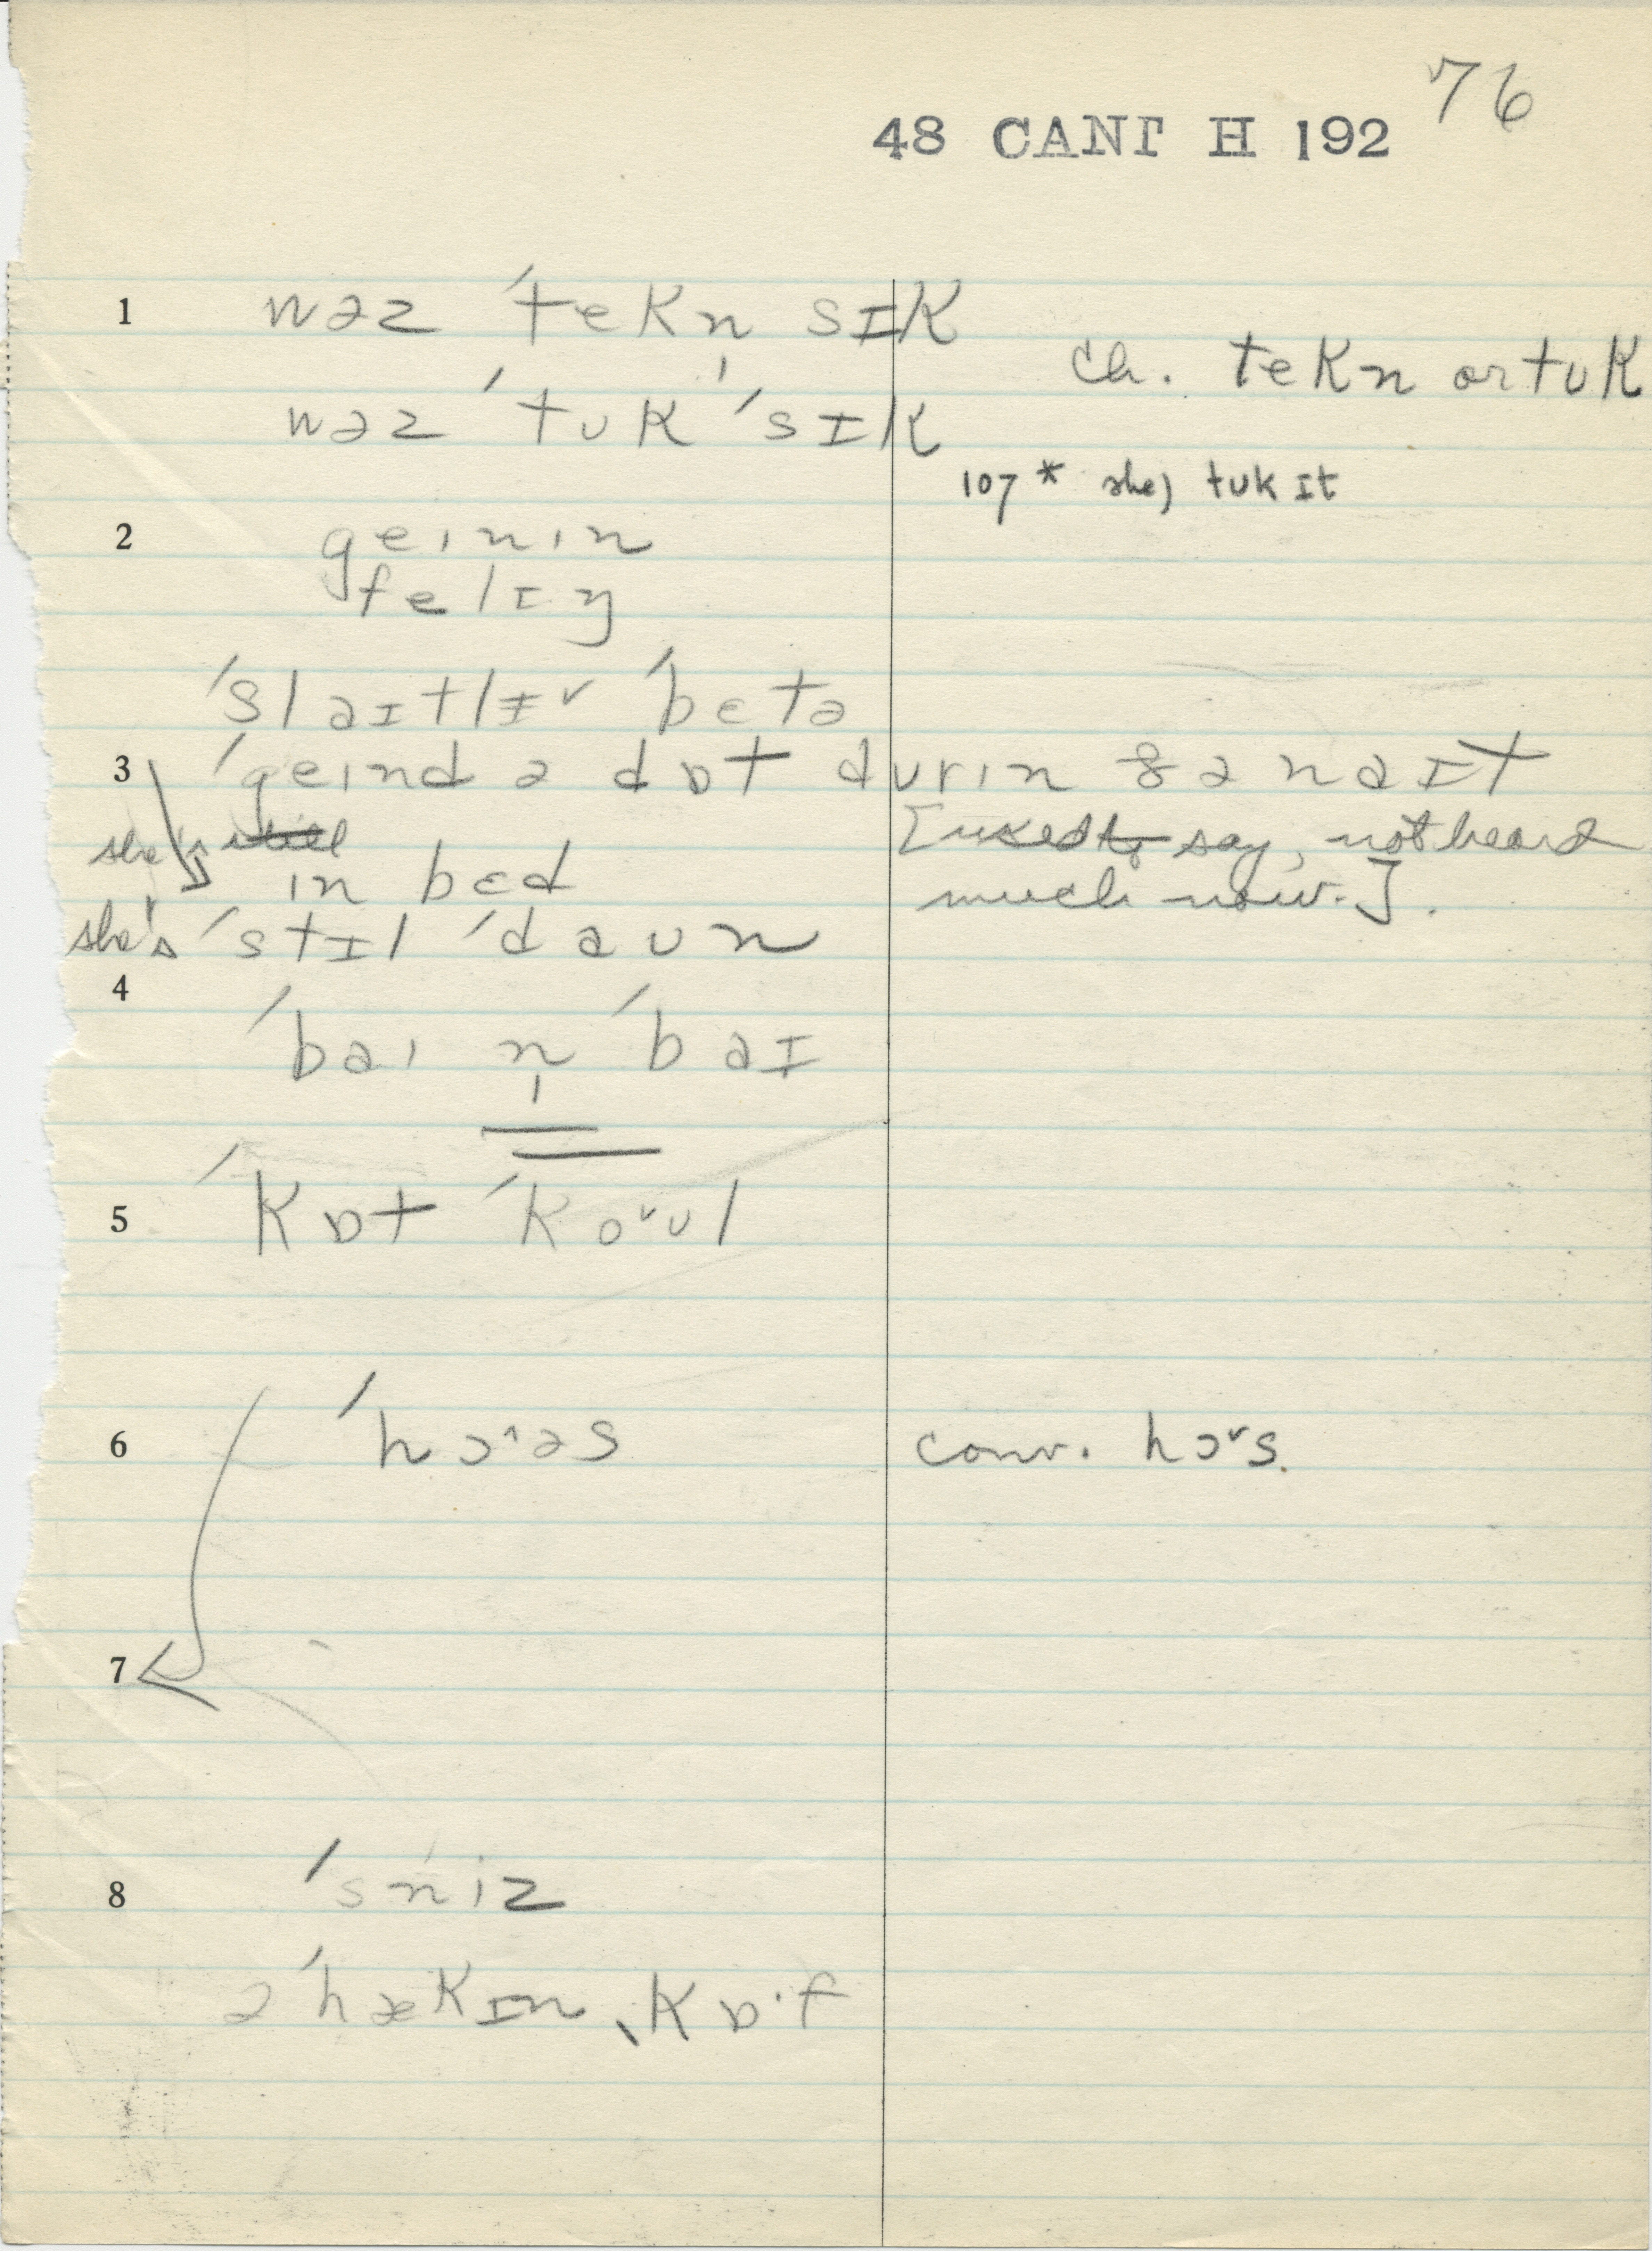 76
48 CANT H 192
1 wəz ˈtekn̩ sɪk
ch. tekn or tuk
wəz ˈtʊk ˈsɪk
107 * she) tʊk ɪt
2 geinin
felɪŋ
ˈslaɪtlɪ˅ ˈbɛtə
3 ˈgeind ə dɒt durin ðə naɪt
she's still in bed
[used to say, not heard much now.].
she's ˈstɪl ˈdaʊn
4
ˈbai n̩ ˈbaɪ
5 ˈkɒt ˈko˅ʊl
6 ˈhɔ˄əs conv. hɔ˅s.
7
8 ˈsniz
ə ˈhækɪn ˎkɒ·f